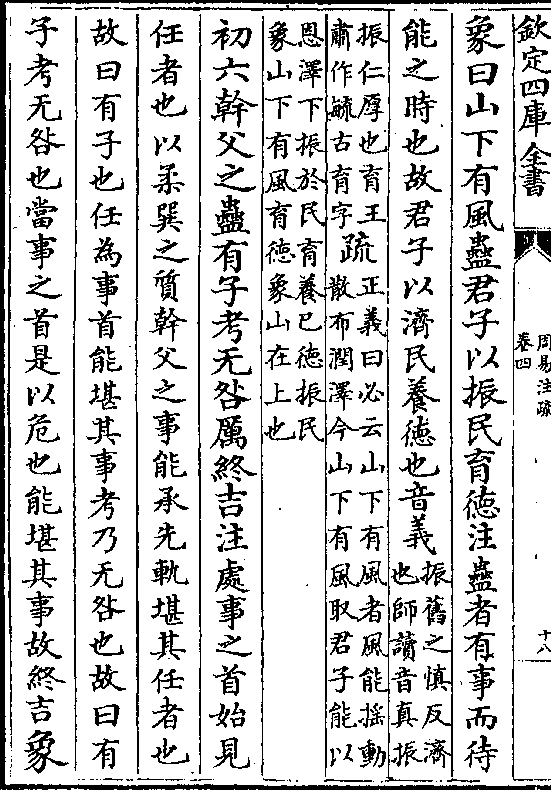 欽定四庫全書
周易注疏
卷四
十八
象曰山下有風蠱君子以振民育德注蠱者有事而待
能之時也故君子以濟民養德也音義振舊之慎反濟
也師讀音真振
振仁厚也育王
肅作毓古育字疏正義曰必云山下有風者風能搖動
散布潤澤今山下有風取君子能以
恩澤下振於民育養已德振民
象山下有風育德象山在上也
初六幹父之蠱有子考无咎厲終吉注處事之首始見
任者也以柔巽之質幹父之事能承先軌堪其任者也
故曰有子也任為事首能堪其事考乃无咎也故曰有
子考无咎也當事之首是以危也能堪其事故終吉象